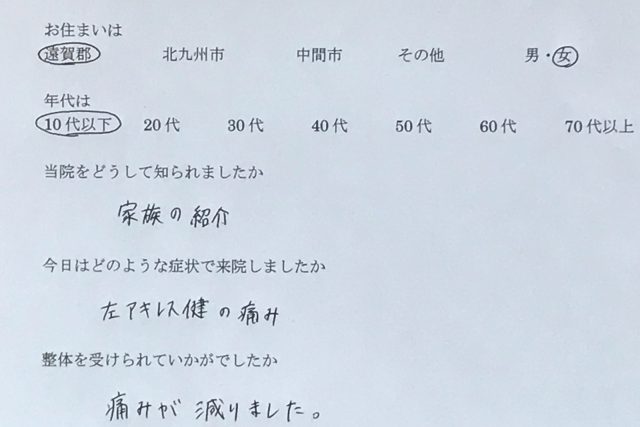 お住まいは
遠賀郡 北九州市 中間市 その他 男・女
年代は
10代以下 20代 30代 40代 50代 60代 70代以上
当院をどうして知られましたか
家族の紹介
今日はどのような症状で来院しましたか
左アキレス健の痛み
整体を受けられていかがでしたか
痛みが減りました。